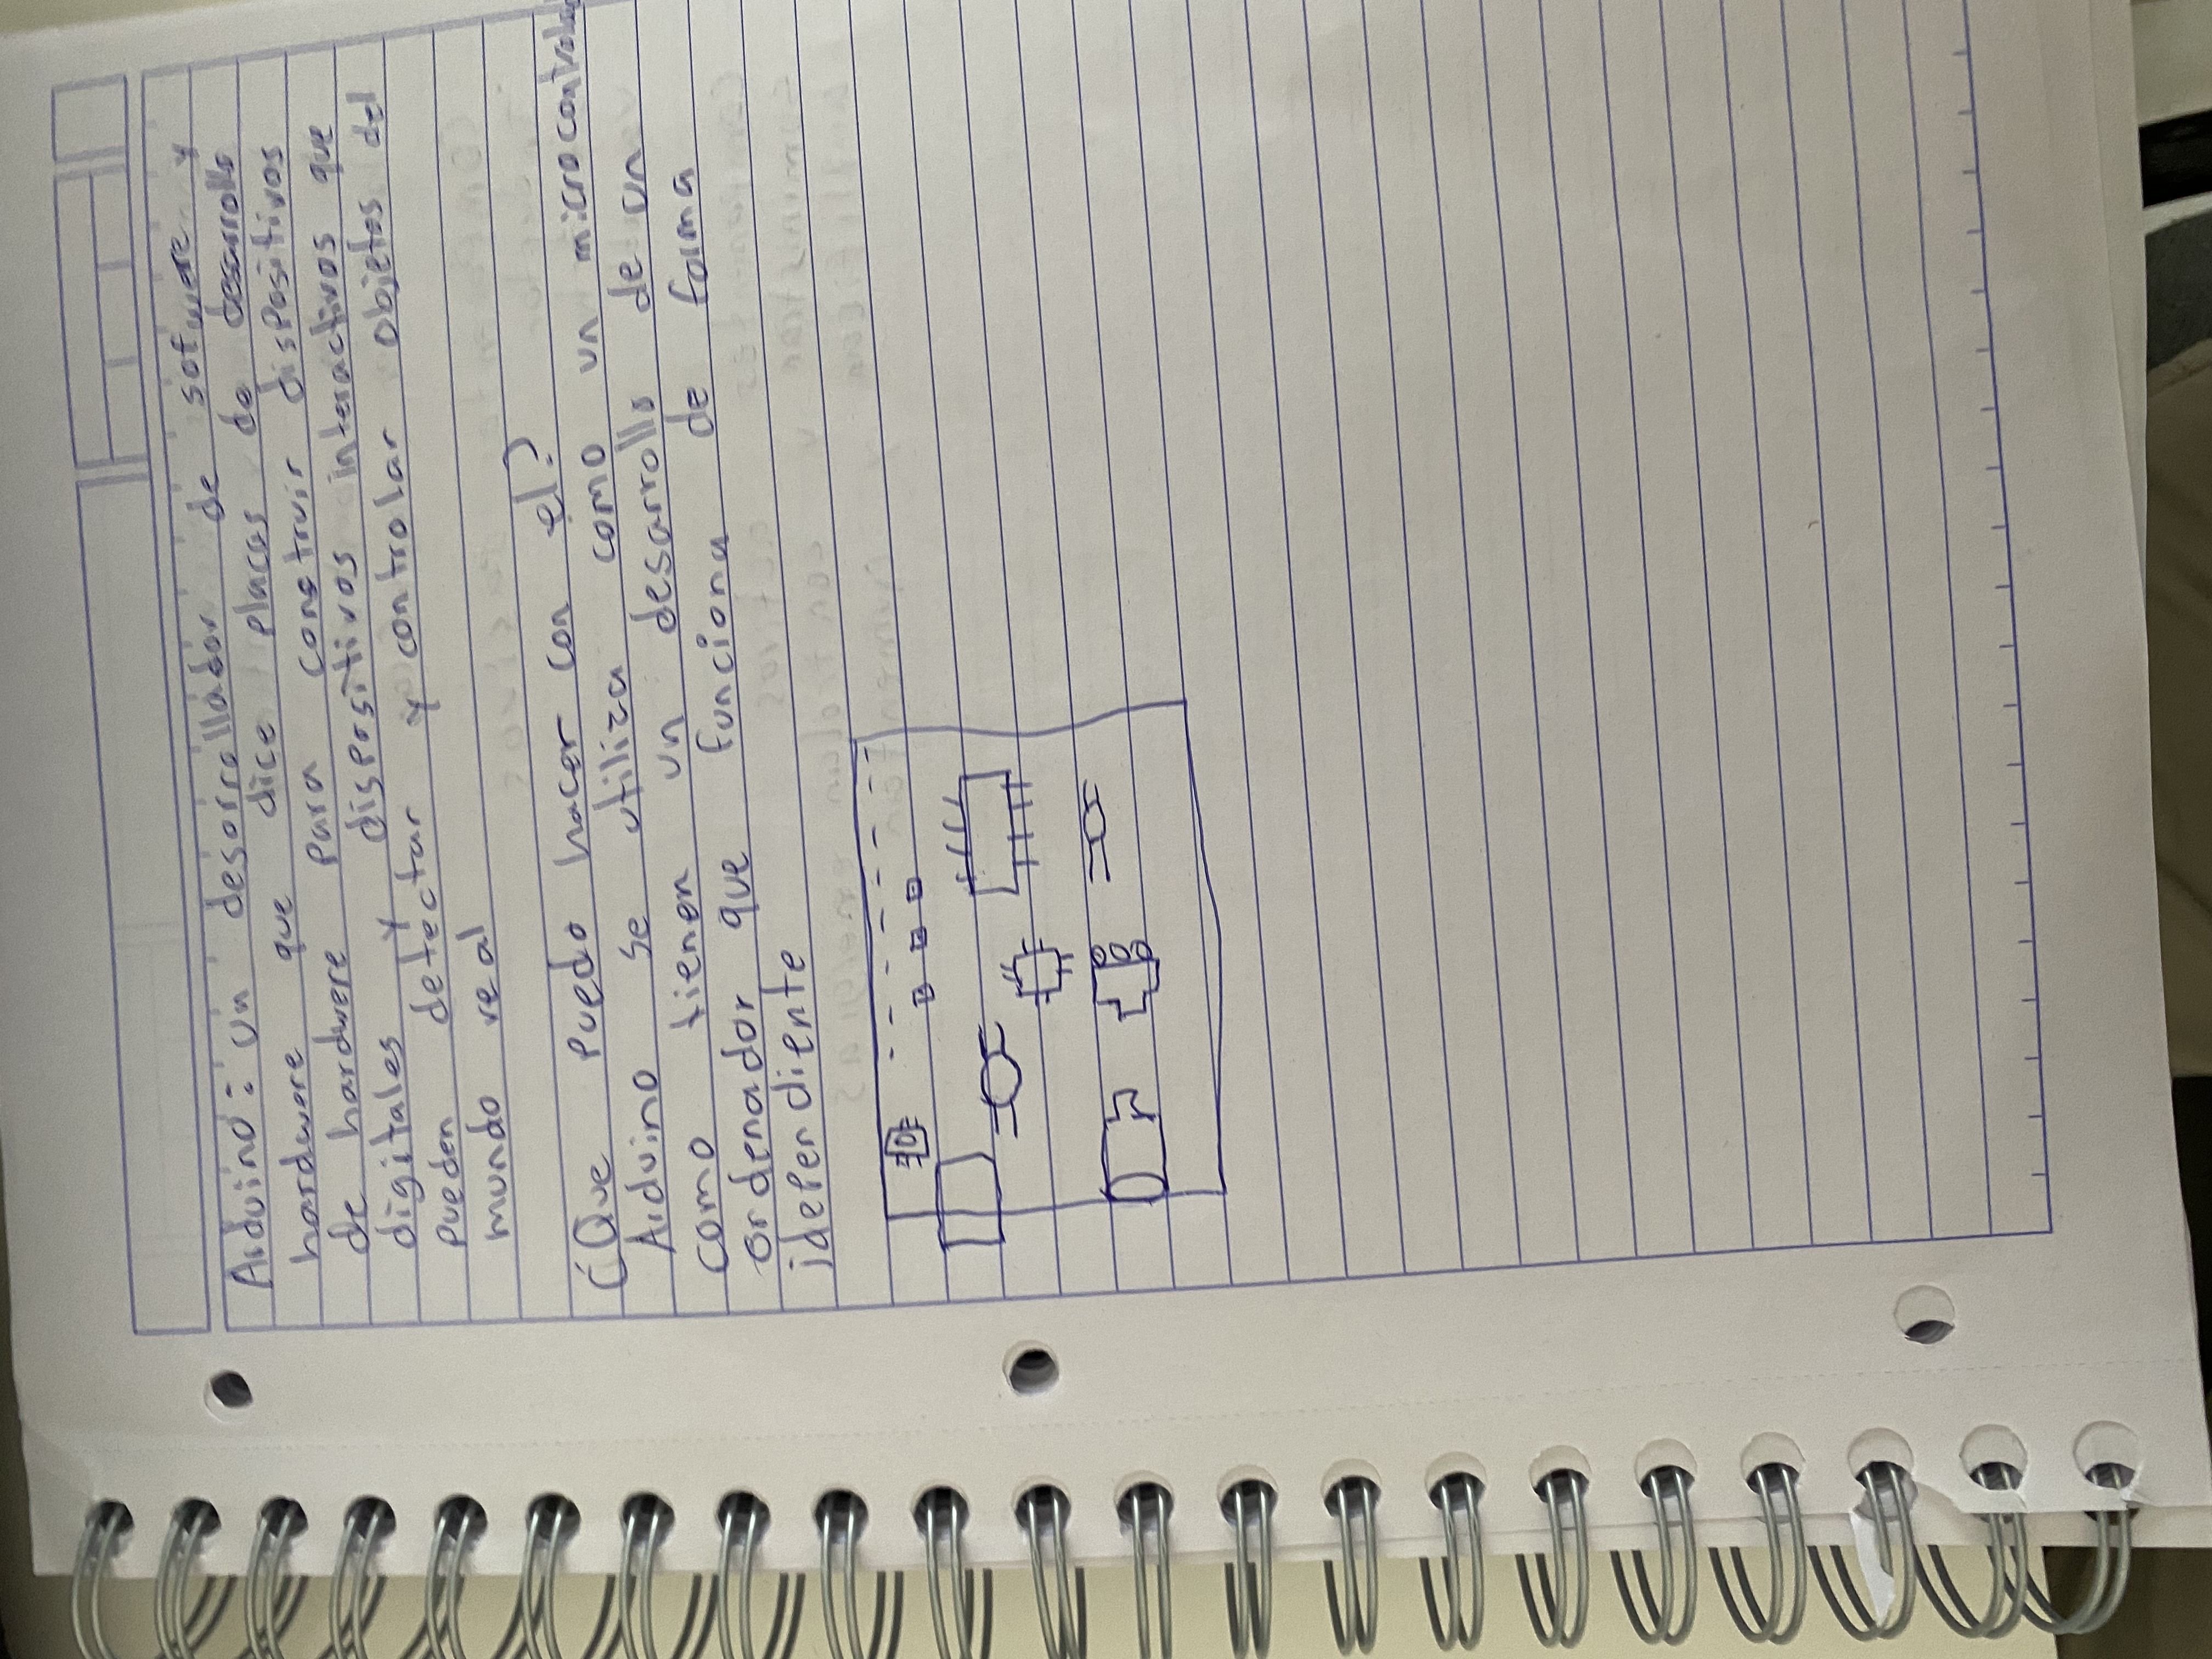 Arduino: un desorrollador de sofwere y
hardwere que dice placas de desarrollo
de hardwere para construir dispositivos
digitales y dispositivos interactivos que
pueden detectar y controlar objetos del
mundo real
¿Que puedo hacer con el?
Arduino se utiliza como un microcontrolador
como tienen un desarrollo de un
ordenador que funciona de forma
idependiente